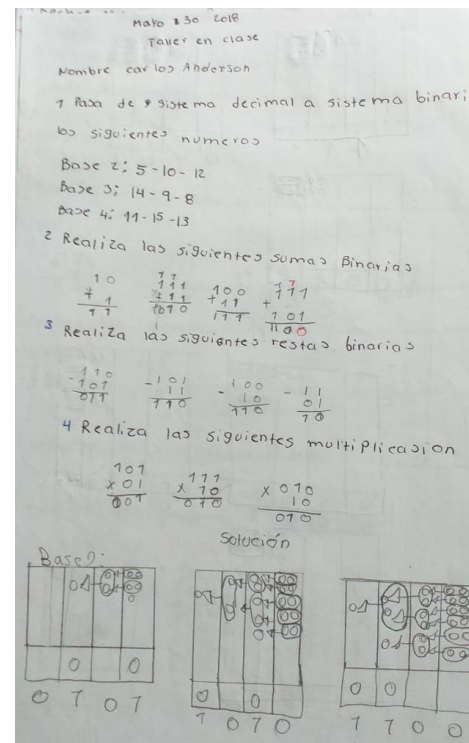 Mayo 30 2018
Taller en clase
Nombre carlos Anderson
1 Pasa de sistema decimal a sistema binari
los siguientes numeros
Base 2: 5-10-12
Base 3: 14-9-8
Base 4: 11-15-13
2 Realiza las siguientes sumas Binarias
10 + 1 11
11 111 + 11 1010
100 + 11 111
11 111 + 101 1100
3 Realiza las siguientes restas binarias
-110 101 011
-101 11 110
-100 10 110
-11 01 10
4 Realiza las siguientes multiplicasion
101 x 01 001
111 x 10 010
x 010 10 010
Solución
Base 2:
0 1 0 1
1 0 1 0
1 1 0 0